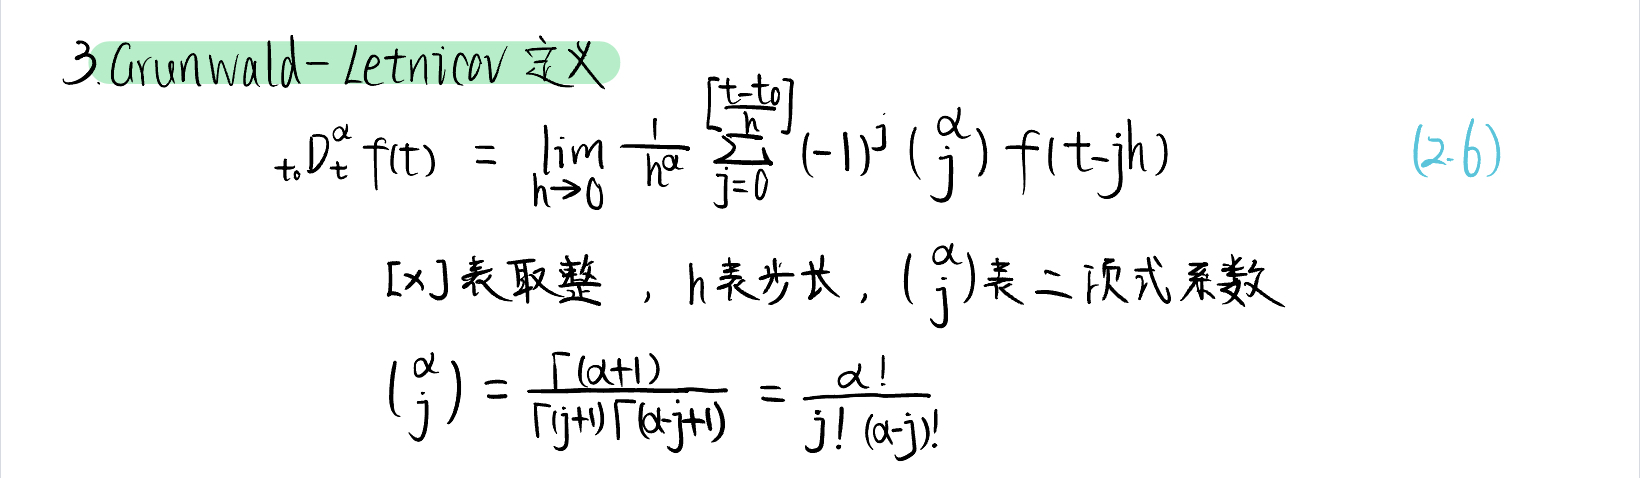 3.Grunwald-Letnicov 定义
t₀Dₜᵅ f(t) = lim_{h→0} 1/h^α ∑_{j=0}^{[(t-t₀)/h]} (-1)^j (α j) f(t-jh) (2.6)
[x]表取整，h表步长，(α j)表二项式系数
(α j) = Γ(α+1)/Γ(j+1)Γ(α-j+1) = α!/j!(α-j)!